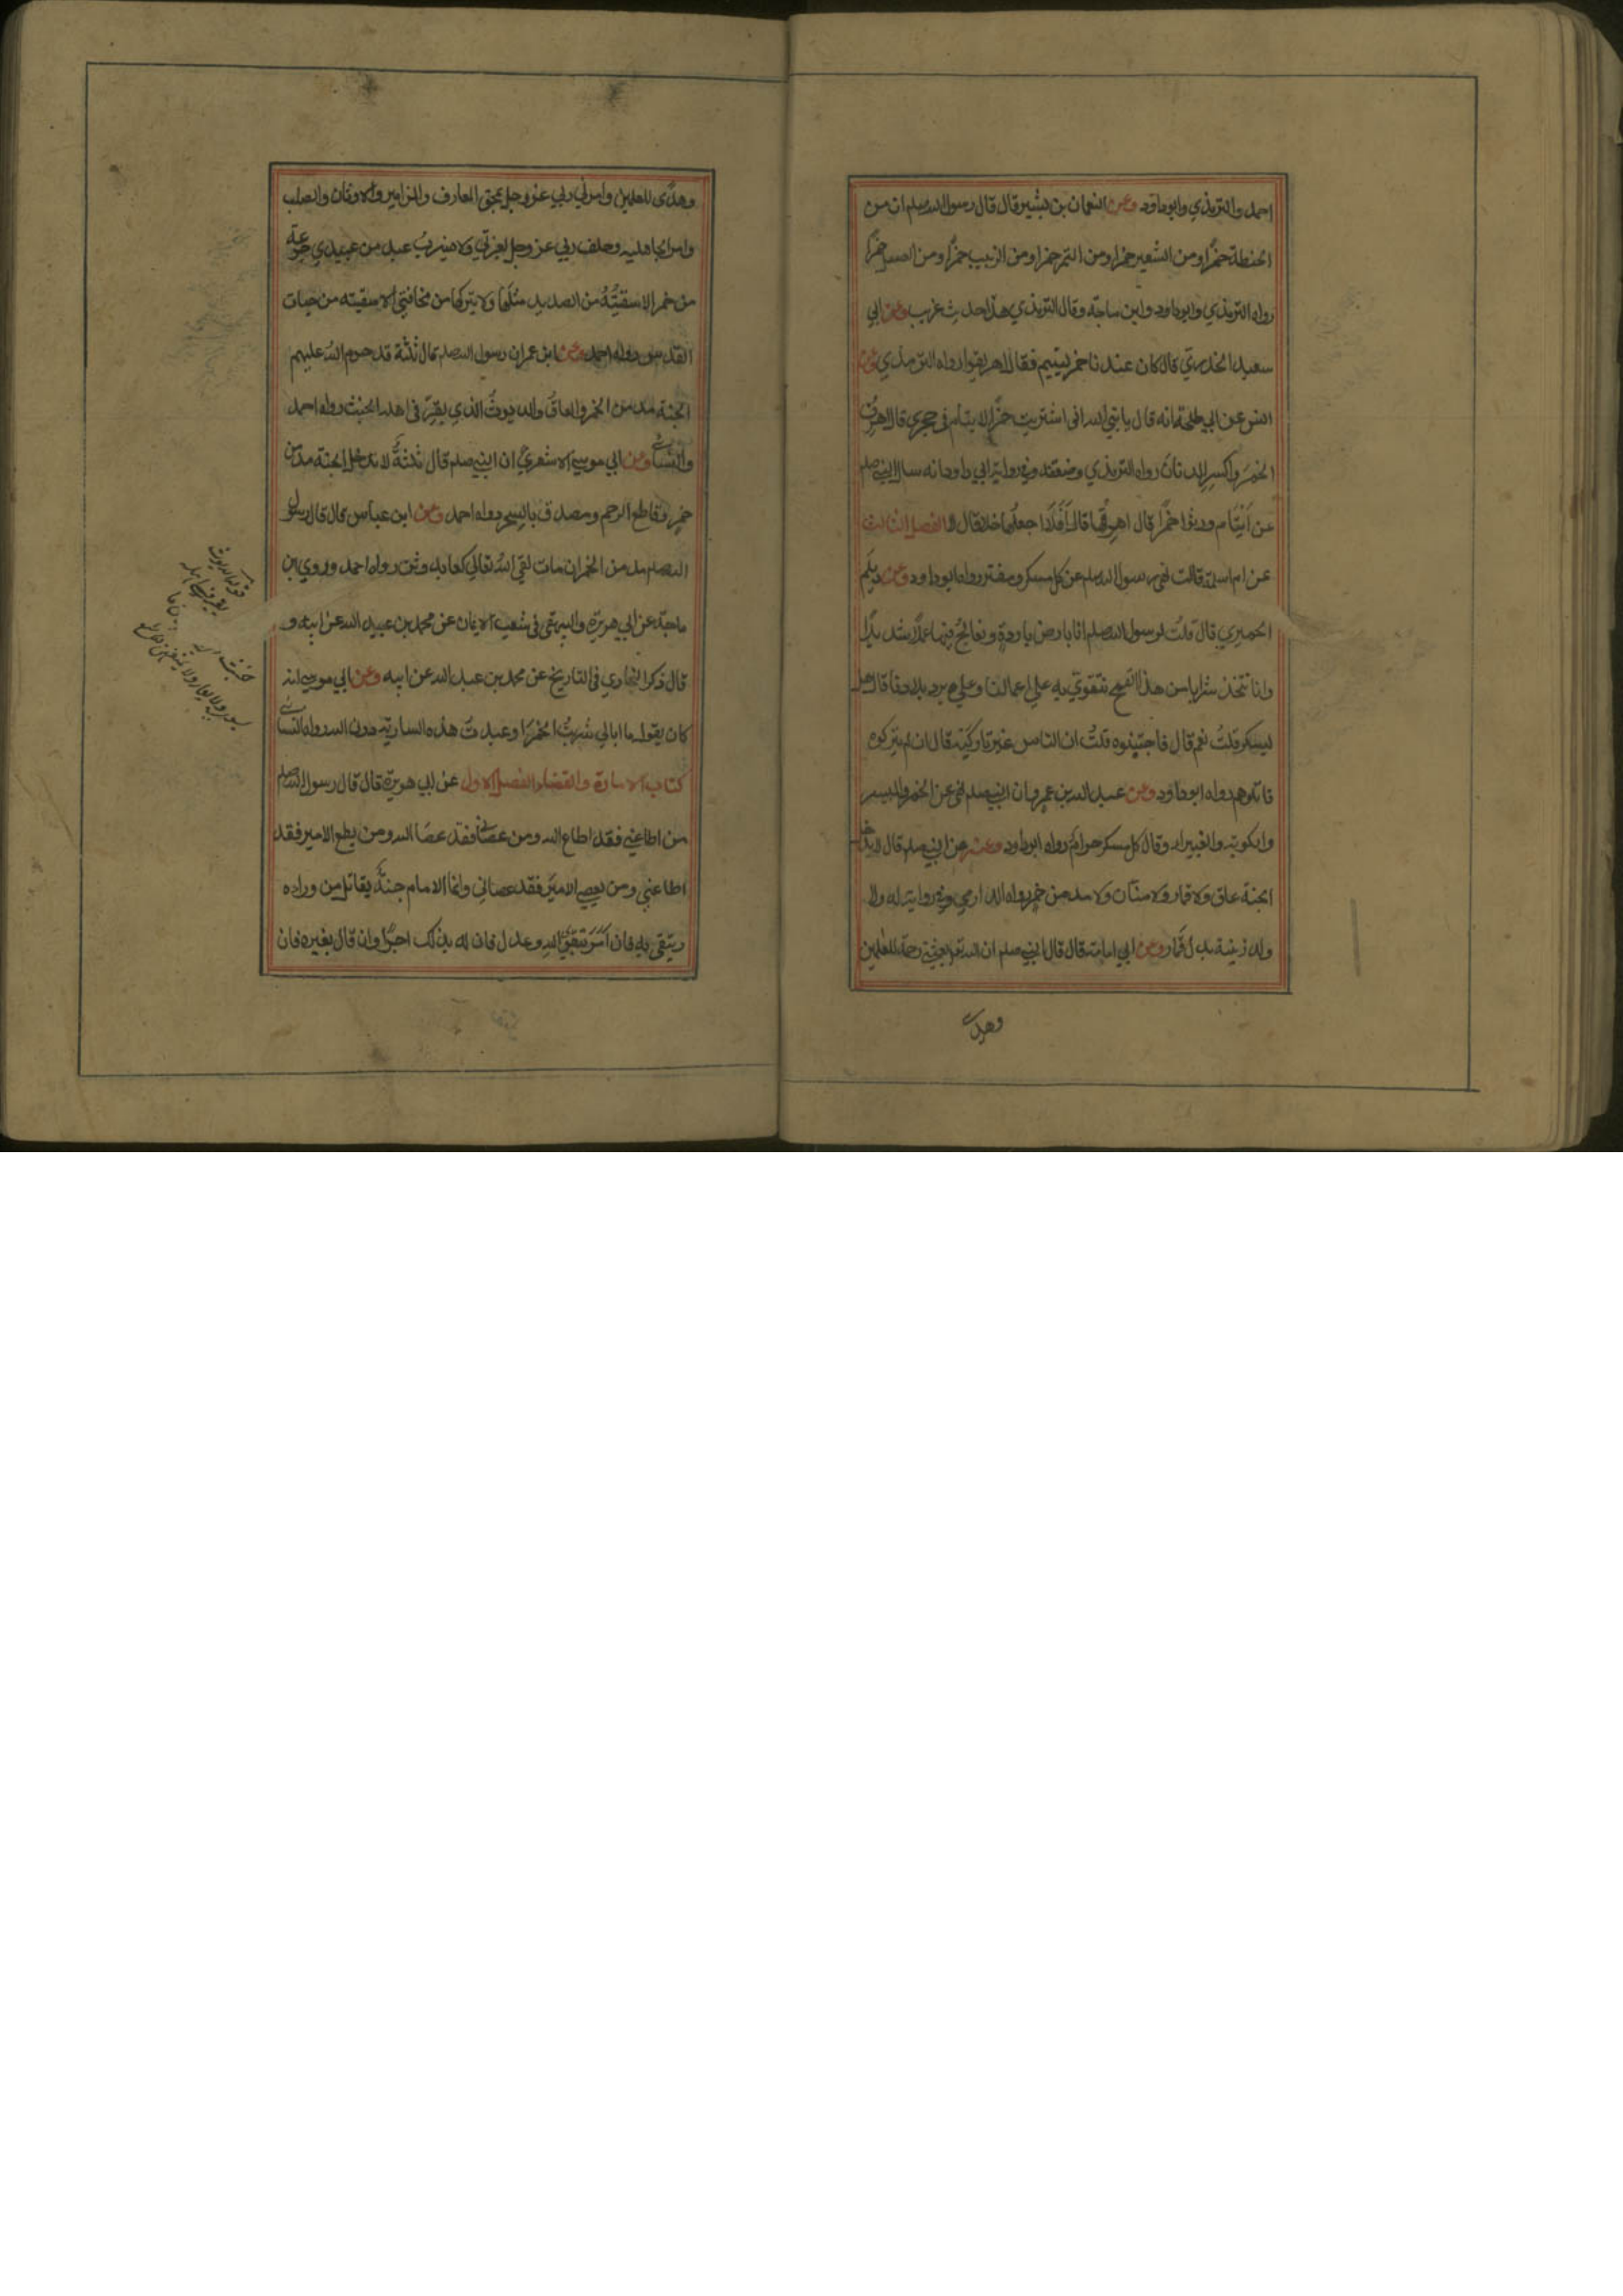 احمد والترمذي وابوداود وعن النعمان بن بشير قال قال رسول الله صلعم ان من
الحنطة خمرًا ومن الشعير خمرا ومن التمر خمرا ومن الزبيب خمرًا ومن العسل خمرًا
رواه الترمذي وابوداود وابن ماجة وقال الترمذي هذا حديث غريب وعن ابي
سعيد الخدري قال كان عندنا خمر ليتيم فقال اهريقوا رواه الترمذي وعن
انس عن ابي طلحة انه قال يا نبي الله اني اشتريت خمرًا لايتام في حجري قال اهرق
الخمرَ واكسرِ الدنانَ رواه الترمذي وضعفه وفي رواية ابي داود انه سال النبي صلعم
عن اَيتام ورثوا خمرًا قال اهرقها قال اَفَلَا اجعلُها خلا قال لا الفصل الثالث
عن ام سلمة قالت نهى رسول الله صلعم عن كل مسكر ومفتر رواه ابوداود وعن ديلَم
الحميري قال قلتُ لرسول الله صلعم انا بارض باردةٍ ونعالجُ فيها عملًا شديدًا
وانا نتخذ شرابا من هذا القمح نتقوي به علي اعمالنا وعلي برد بلادنا قال هل
يسكر قلتُ نعم قال فاجتنبوه قلتُ ان الناس غير تاركيه قال ان لم يتركوه
قاتلوهم رواه ابوداود وعن عبد الله بن عمرو ان النبي صلعم نهى عن الخمر والميسر
والكوبة والغبيراء وقال كل مسكر حرام رواه ابوداود وعنه عن النبي صلعم قال لا يدخل
الجنة عاق ولا قمار ولا منّان ولا مدمن خمر رواه الدارمي وفي رواية له ولا
ولد زنية بدل قمار وعن ابي امامة قال قال النبي صلعم ان الله تع بعثني رحمة للعلمين
وهدى
وهدًى للعلمين وامرني ربي عز وجل بمحق المعازف والمزامير والاوثان والصلب
وامر الجاهلية وحلف ربي عز وجل بعزتي لا يشربُ عبد من عبيدي جرعة
من خمر الا سقيتُهُ من الصديد مثلَها ولا يتركها من مخافتي الا سقيته من حياض
القدس رواه احمد وعن ابن عمر ان رسول الله صلعم قال ثلثة قد حرم الله عليهم
الجنة مدمن الخمر والعاقُ والديوثُ الذي يقرّ في اهله الخبث رواه احمد
والنسائي وعن ابي موسي الاشعري ان النبي صلعم قال ثلثةٌ لا يدخل الجنة مدمن
خمرٍ وقاطع الرحم ومصدق بالسحر رواه احمد وعن ابن عباس قال قال رسول
الله صلعم مدمن الخمر ان مات لقي اللهَ تعالي كعابد وثن رواه احمد وروي ابن
ماجة عن ابي هريرة والبيهقي في شعب الايمان عن محمد بن عبيد الله عن ابيه و
قال ذكر البخاري في التاريخ عن محمد بن عبد الله عن ابيه وعن ابي موسي انه
كان يقول ما ابالي شربتُ الخمرَ او عبدتُ هذه السارية دون الله رواه النسائي
كتاب الامارة والقضاء الفصل الاول عن ابي هريرة قال قال رسول الله صلعم
من اطاعني فقد اطاع الله ومن عصاني فقد عصَا الله ومن يطع الامير فقد
اطاعني ومن يعصي الاميرَ فقد عصاني وانما الامام جنةٌ يقاتل من ورائه
ويتقى به فان اَمَرَ بتقوى اللهِ وعدل فان له بذلك اجرًا وان قال بغيره فان
قوله الديوث